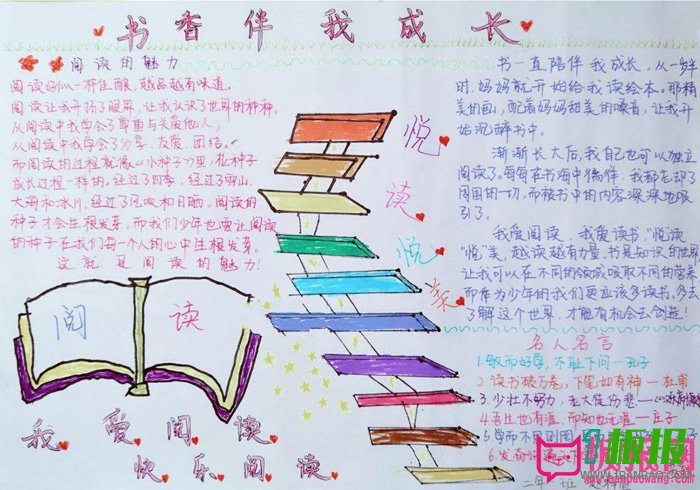 书香伴我成长
阅读的魅力
阅读好似一杯佳酿，越品越有味道，
阅读让我开拓了眼界，让我认识了世界的种种。
从阅读中我学会了尊重与关爱他人；
从阅读中我学会了分享、友爱、团结。
而阅读的过程就像从小种子力里，松种子
成长过程一样的，经过了四季，经过了雪山、
大雨和冰川，经过了风吹和日晒，阅读的
种子才会生根发芽。而我们少年也要让阅读
的种子在我们每一个人的心中生根发芽。
这就是阅读的魅力！
阅读
我爱阅读
快乐阅读
悦
读
悦
美
书一直陪伴我成长，从一岁半
时，妈妈就开始给我读绘本。那精
美的画，配着妈妈甜美的嗓音，让我开
始沉醉书中。
渐渐长大后，我自己也可以独立
阅读了。每每在书海中徜徉，我都忘却了
周围的一切，而被书中的内容深深地吸
引了。
我爱阅读，我爱读书，“悦读
“悦”美，越读越有力量。书是知识的世界
让我可以在不同的领域吸取不同的营养
而作为少年的我们更应该多读书，多去
了解这个世界，才能有机会去创造！
名人名言
1.敏而好学，不耻下问—孔子
2.读书破万卷，下笔如有神—杜甫
3.少壮不努力，老大徒伤悲—
4.吾生也有涯，而知也无涯—庄子
5.学而不思则罔
6.发奋识遍
板报网
www.banbaowang.com
二年 班